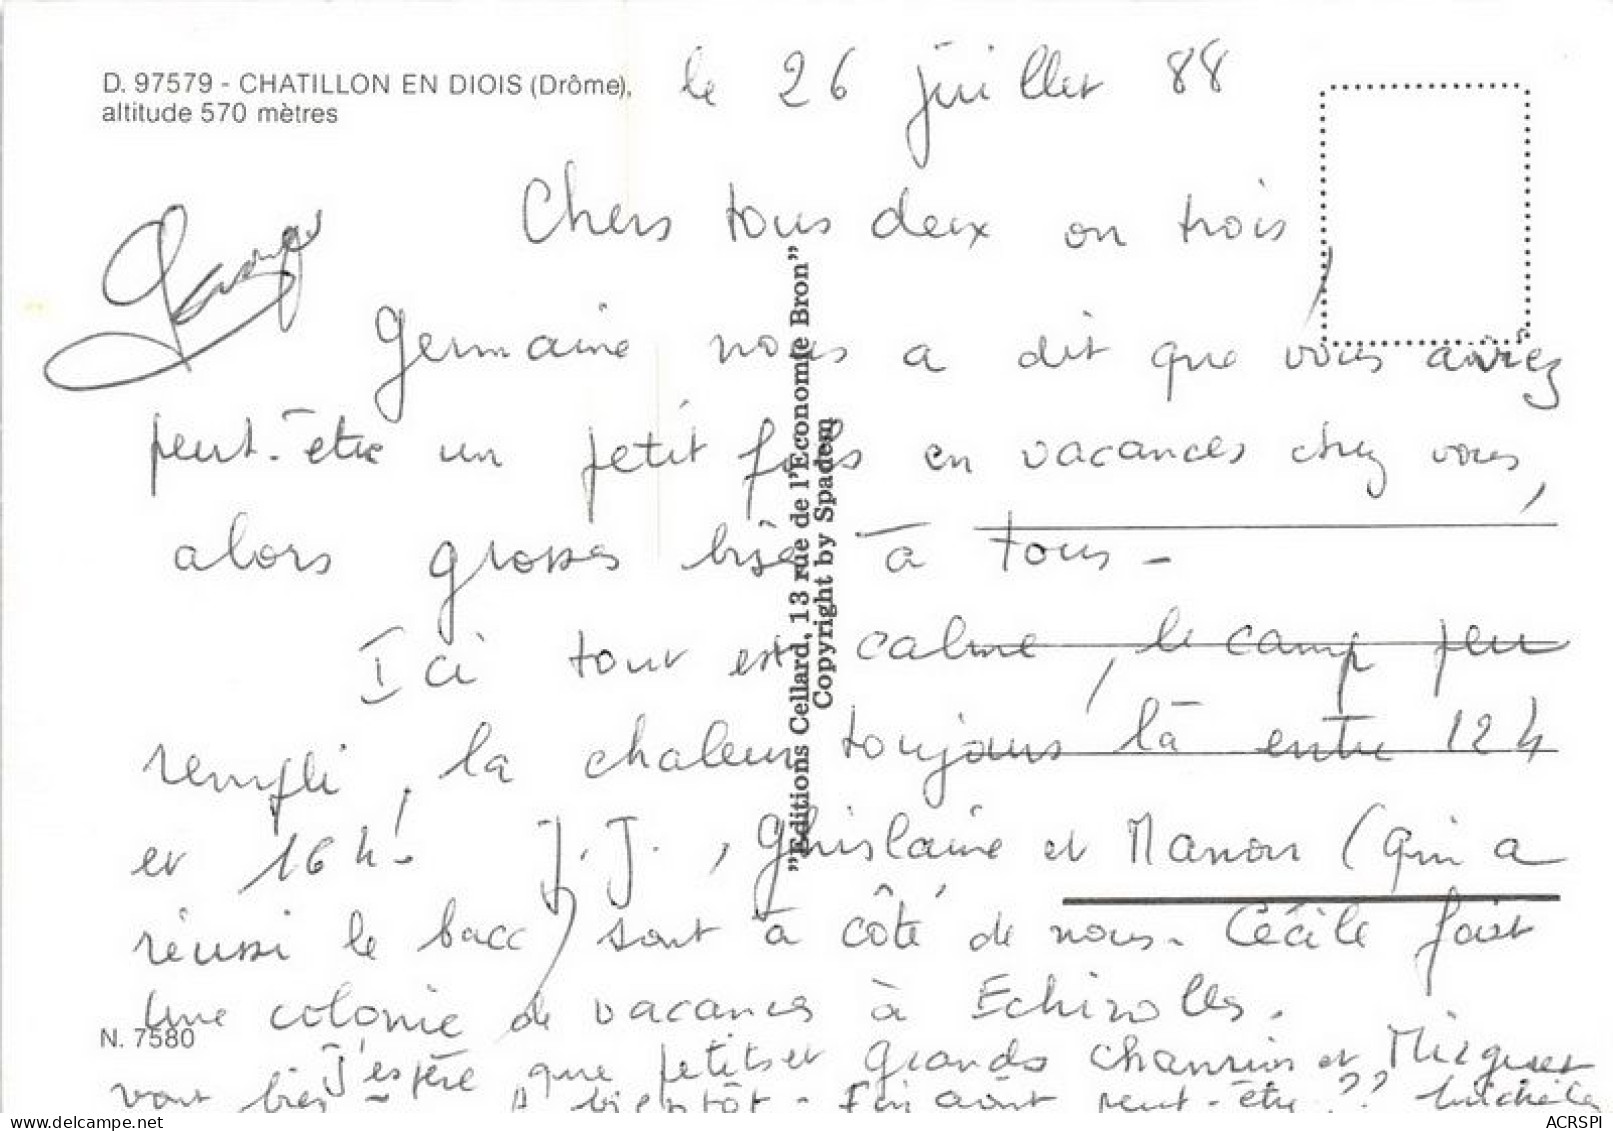 D. 97579 - CHATILLON EN DIOIS (Drôme),
altitude 570 mètres
le 26 juillet 88
Chers tous deux ou trois,
Germaine nous a dit que vous auriez
peut-être un petit fils en vacances chez vous,
alors grosses bises à tous -
Ici tout est calme, le camp peu
rempli, la chaleur toujours là entre 12 h
et 16 h! J.J., Ghislaine et Manon (qui a
réussi le bacc) sont à côté de nous. Cécile fait
une colonie de vacances à Echirolles.
J'espère que petits et grands et
vont bien - A bientôt - Fin août peut-être ??
"Editions Cellard, 13 rue de l'Economie Bron"
Copyright by Spadem
N. 7580
delcampe.net
ACRSPI